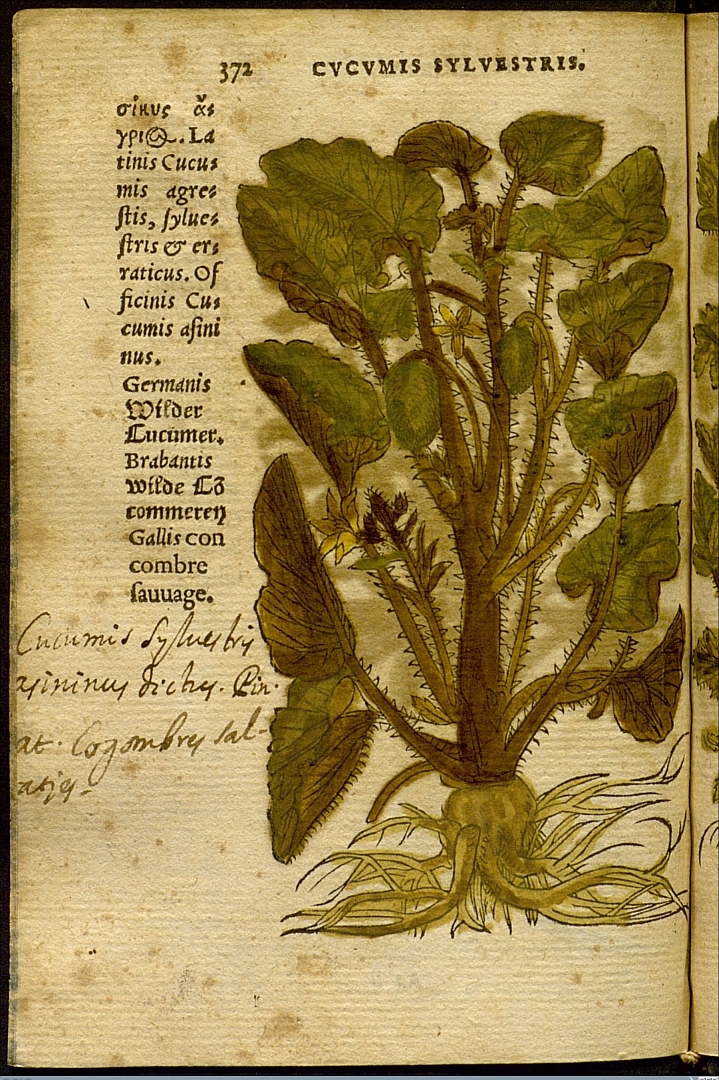 372 CVCVMIS SYLVESTRIS.
σίκυς ἄ⸗
γριος. La
tinis Cucu⸗
mis agre⸗
ſtis, ſylue⸗
ſtris & er⸗
raticus. Of
ficinis Cu⸗
cumis aſini
nus.
Germanis
Wilder
Cucumer.
Brabantis
wilde Cō
commeren
Gallis con
combre
ſauuage.
Cucumis Sylvestris
asininus dictus. Pin.
at. Cogombres sal-